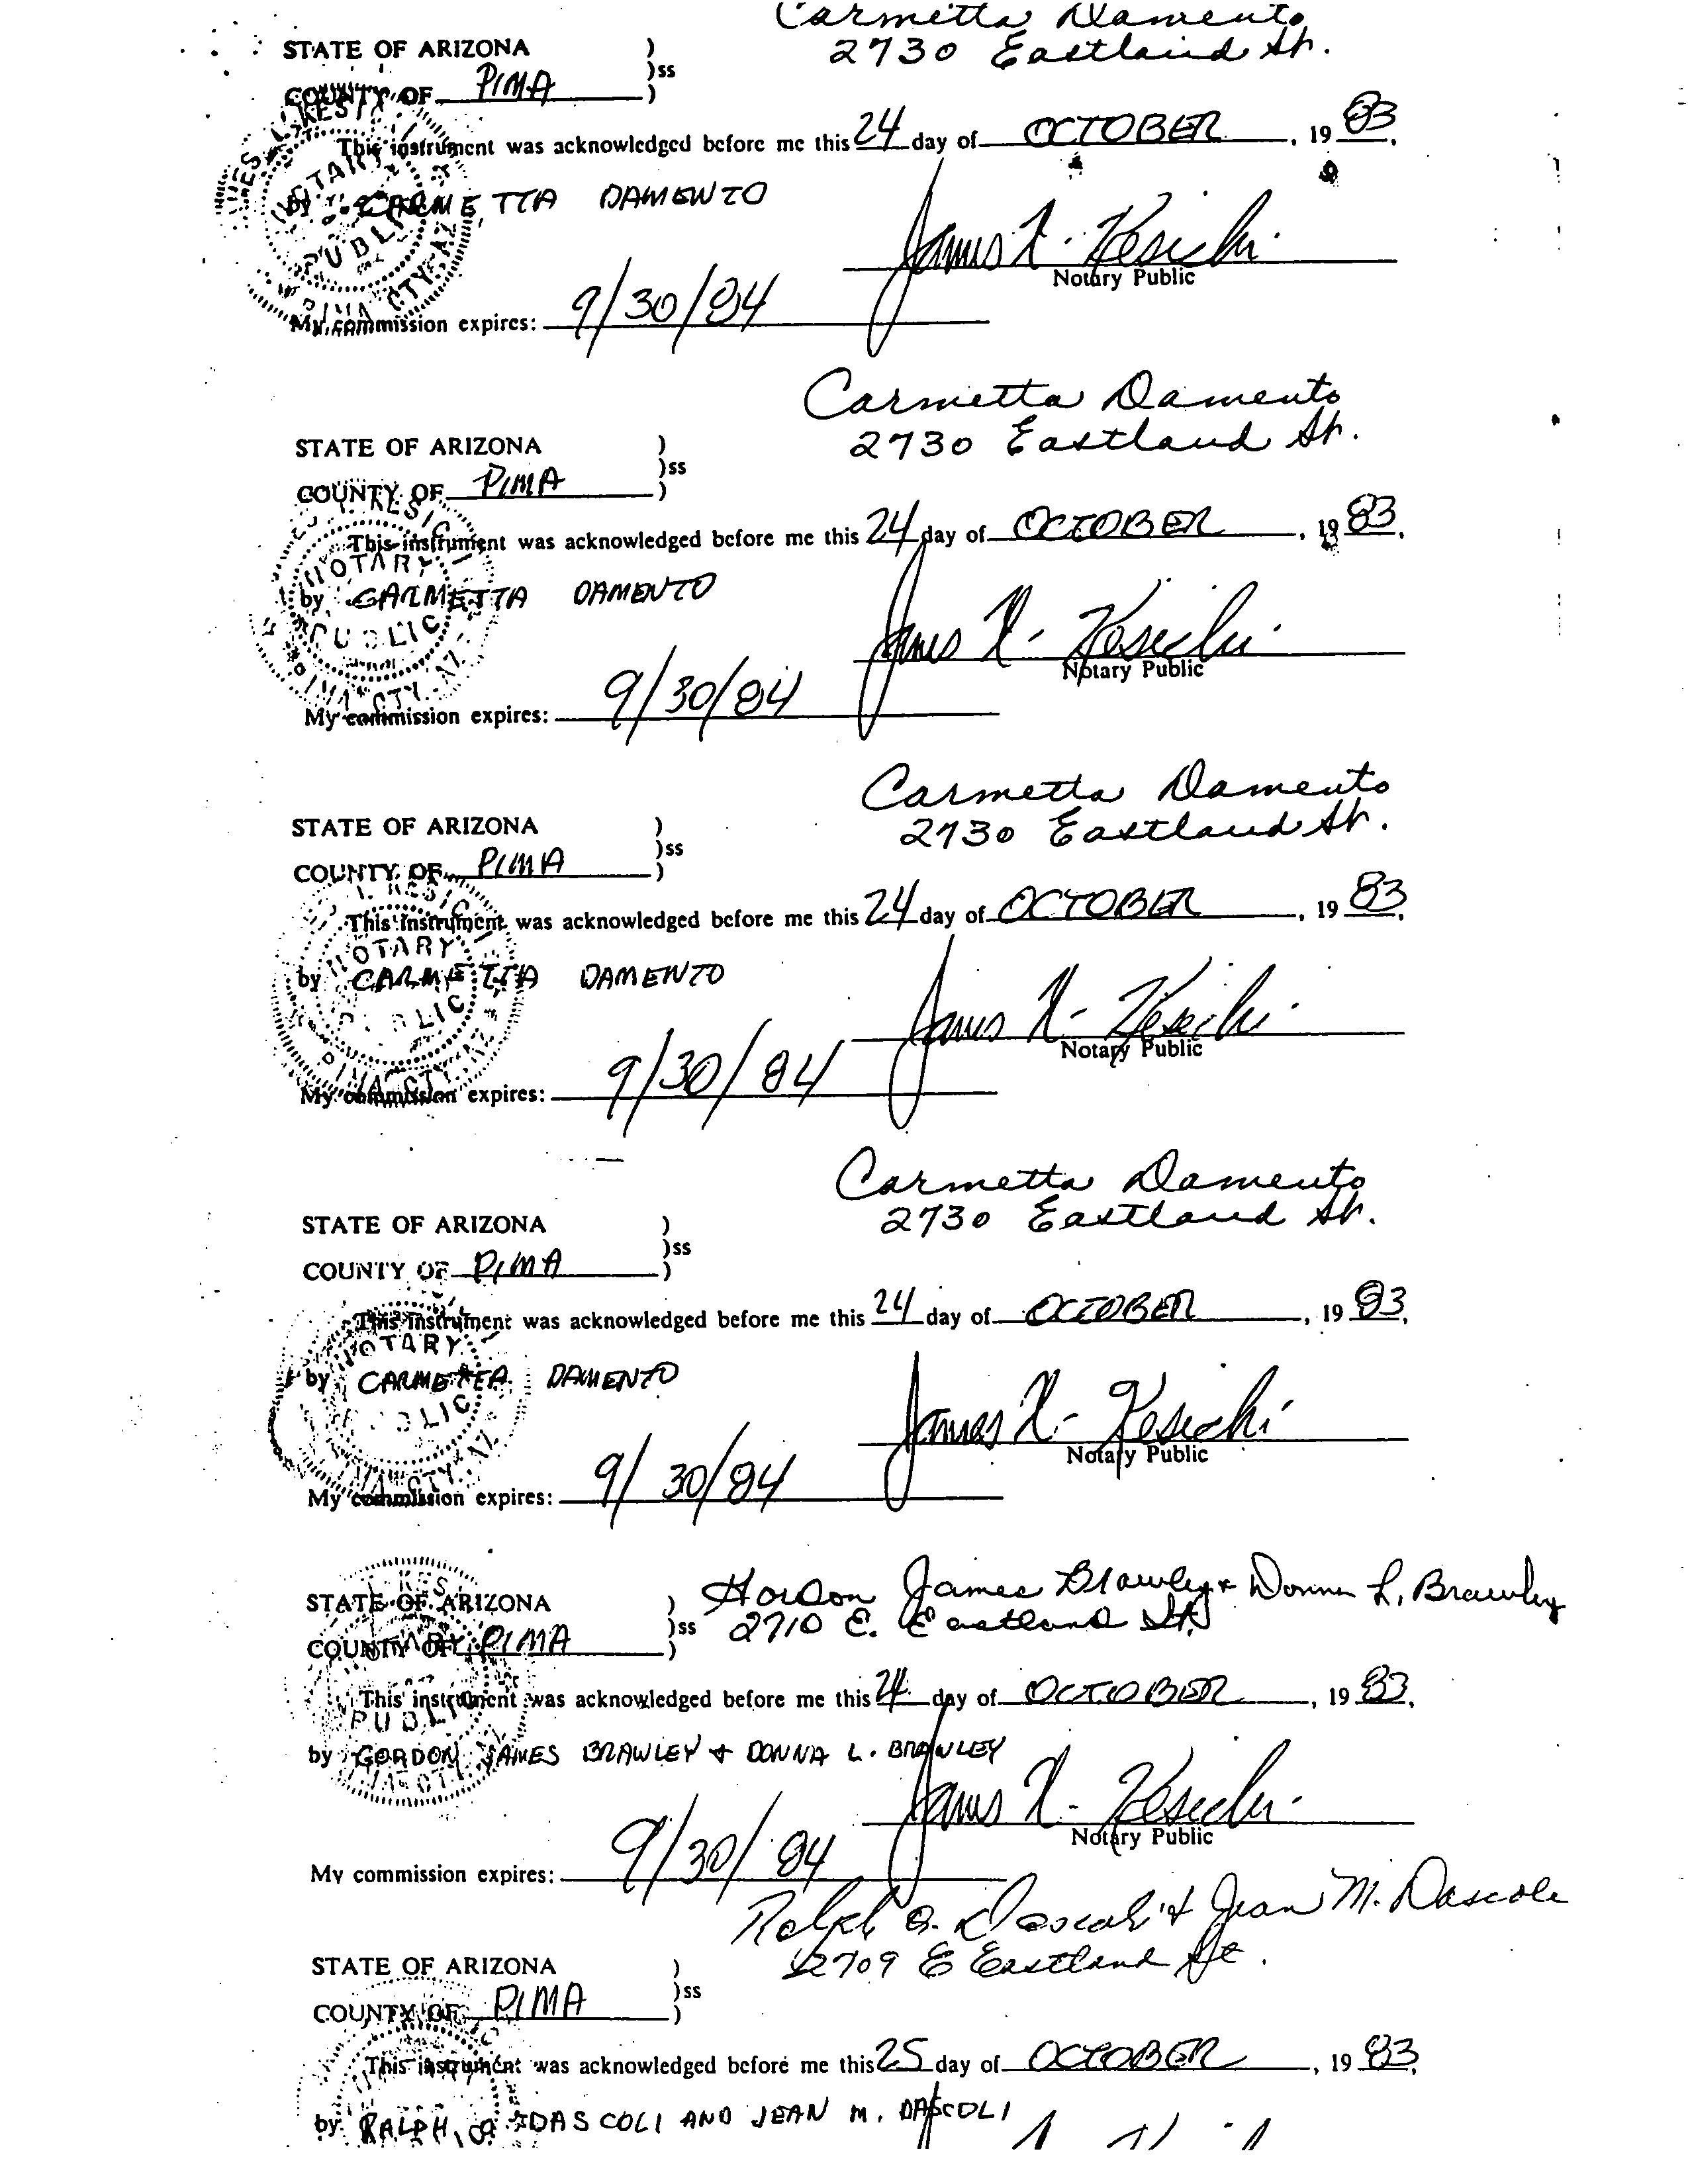 Carmetta Damento
STATE OF ARIZONA )
2730 Eastland St.
)ss
COUNTY OF PIMA )
This instrument was acknowledged before me this 24 day of OCTOBER, 1983.
by CARMETTA DAMENTO
Notary Public
My commission expires: 9/30/84
Carmetta Damento
STATE OF ARIZONA )
2730 Eastland St.
)ss
COUNTY OF PIMA )
This instrument was acknowledged before me this 24 day of OCTOBER, 1983.
NOTARY
by CARMETTA DAMENTO
PUBLIC
Notary Public
PIMA CTY. AZ.
My commission expires: 9/30/84
Carmetta Damento
STATE OF ARIZONA )
2730 Eastland St.
)ss
COUNTY OF PIMA )
This instrument was acknowledged before me this 24 day of OCTOBER, 1983.
NOTARY
by CARMETTA DAMENTO
PUBLIC
Notary Public
PIMA CTY. AZ
My commission expires: 9/30/84
Carmetta Damento
STATE OF ARIZONA )
2730 Eastland St.
)ss
COUNTY OF PIMA )
This instrument was acknowledged before me this 24 day of OCTOBER, 1983.
NOTARY
by CARMETTA DAMENTO
PUBLIC
James K. Kesicki
Notary Public
My commission expires: 9/30/84
Gordon James Brawley & Donna L. Brawley
STATE OF ARIZONA )
)ss 2710 E. Eastland St.
COUNTY OF PIMA )
This instrument was acknowledged before me this 24 day of OCTOBER, 1983.
PUBLIC
by GORDON JAMES BRAWLEY & DONNA L. BRAWLEY
Notary Public
My commission expires: 9/30/84
Ralph O. Dascoli & Jean M. Dascole
2709 E Eastland St.
STATE OF ARIZONA )
)ss
COUNTY OF PIMA )
This instrument was acknowledged before me this 25 day of OCTOBER, 1983.
by RALPH O. DASCOLI AND JEAN M. DASCOLI